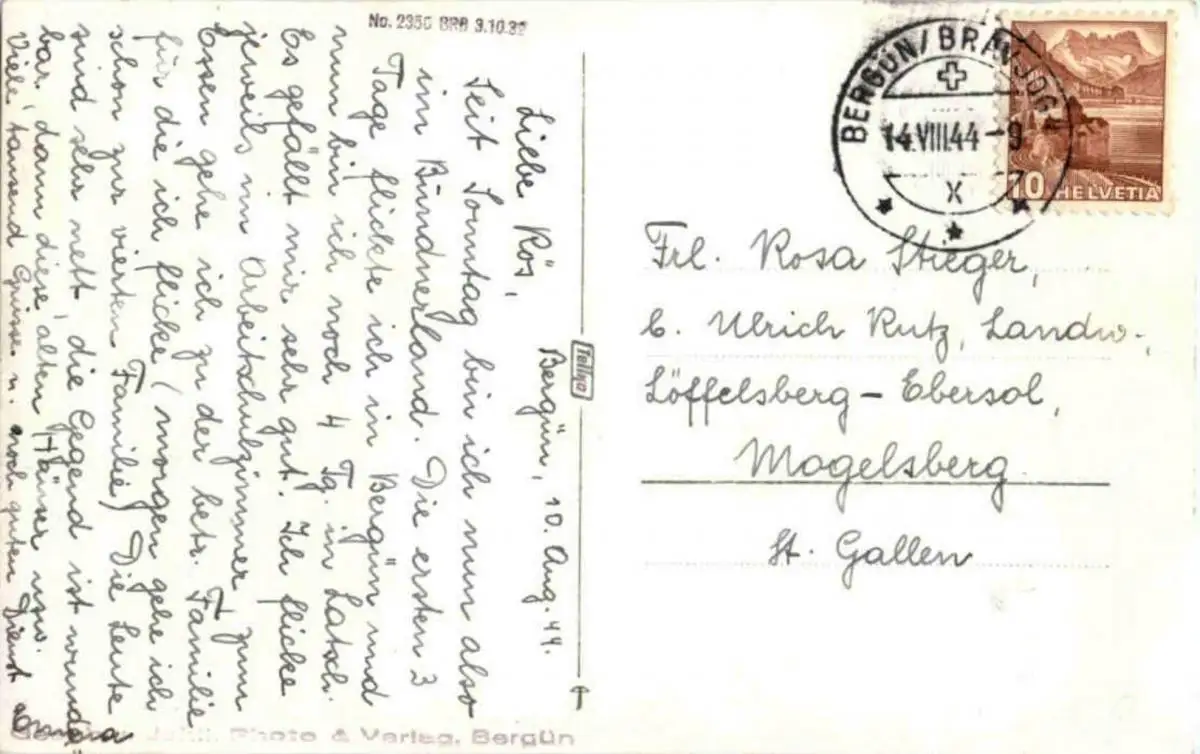 No. 2356 BRB 3.10.32
Bergün, 10. Aug. 44.
Liebe Rös,
Seit Sonntag bin ich nun also
im Bündnerland. Die ersten 3
Tage flickte ich in Bergün und
nun bin ich noch 4 Tg. in Latsch.
Es gefällt mir sehr gut. Ich flicke
jeweils im Arbeitschulzimmer, zum
Essen gehe ich zu der betr. Familie
für die ich flicke (morgen gehe ich
schon zur vierten Familie) Die Leute
sind sehr nett, die Gegend ist wunder-
bar, dann diese alten Häuser usw.
Viele tausend Grüsse u. noch guten Dienst
Tellko
BERGÜN/BRAVUOGN
14.VIII.44-9
X
10 HELVETIA
Frl. Rosa Stieger,
b. Ulrich Rutz, Landw.,
Löffelsberg - Ebersol,
Mogelsberg
St. Gallen
Photo & Verlag, Bergün